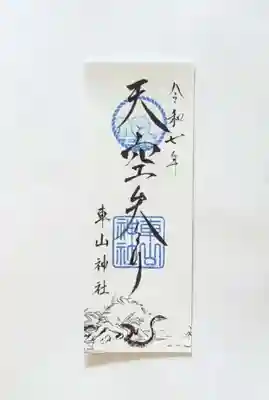 令和七年
天空参り
東山神社
東山
神社